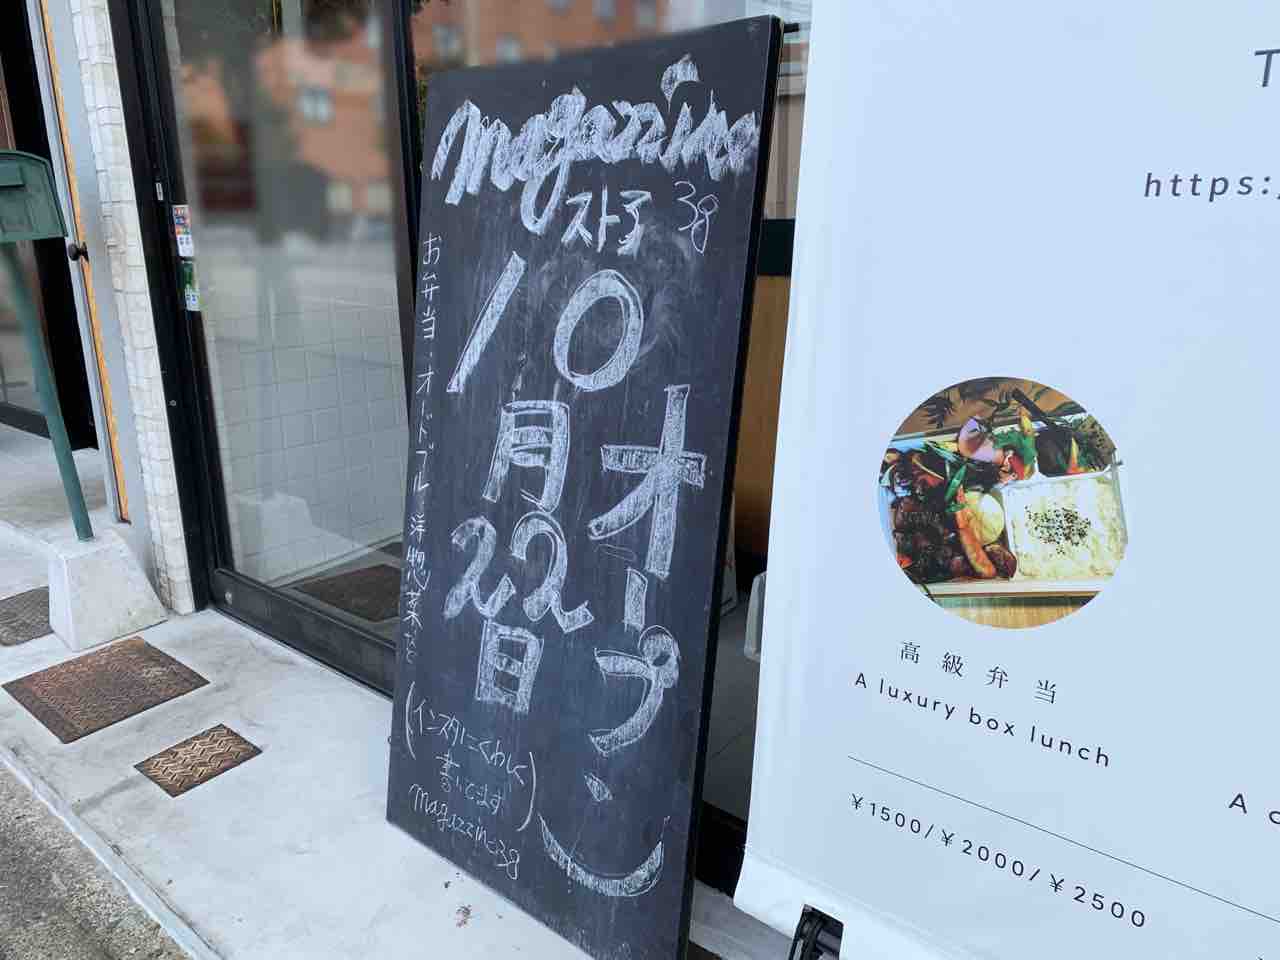 magazzino
ストア 38
10
月
22
日
オープン
お弁当・オードブル・洋惣菜など
(インスタにくわしく
書いてます)
magazzino38
https:
高級弁当
A luxury box lunch
¥1500/¥2000/¥2500